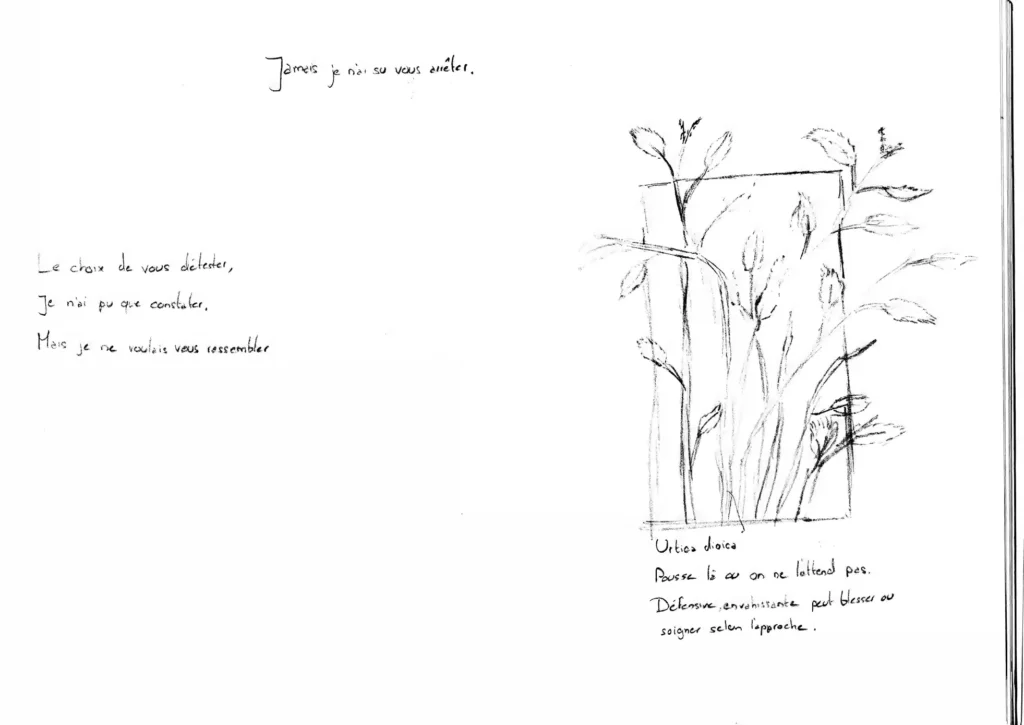 Jamais je n'ai su vous arrêter.
Le choix de vous détester,
Je n'ai pu que constater.
Mais je ne voulais vous ressembler
Urtica dioica
Pousse là ou on ne l'attend pas.
Défensive, envahissante peut blesser ou
soigner selon l'approche.